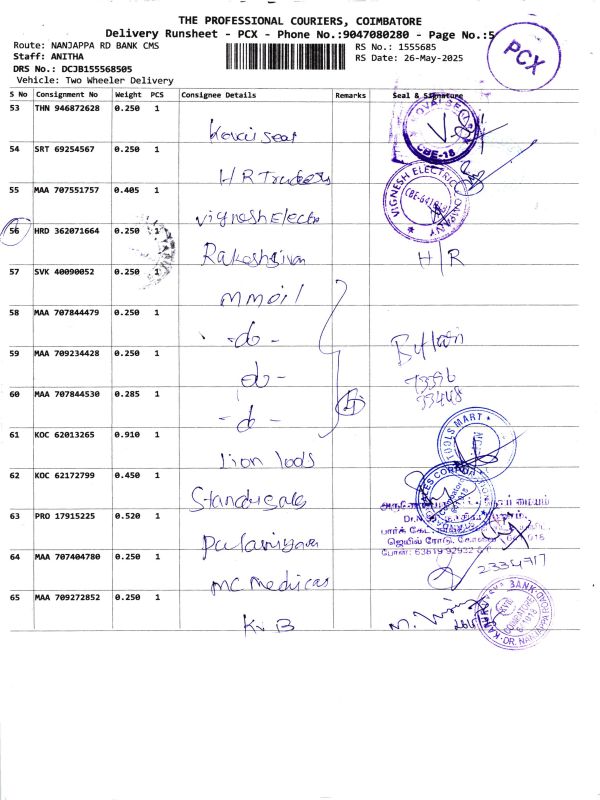 THE PROFESSIONAL COURIERS, COIMBATORE
Delivery Runsheet - PCX - Phone No.:9047080280 - Page No.:5
Route: NANJAPPA RD BANK CMS
RS No.: 1555685
Staff: ANITHA
RS Date: 26-May-2025
DRS No.: DCJB155568505
Vehicle: Two Wheeler Delivery
PCX
S No Consignment No Weight PCS Consignee Details Remarks Seal & Signature
53 THN 946872628 0.250 1
Kovai seat
CBE-18
54 SRT 69254567 0.250 1
H R Traders
55 MAA 707551757 0.405 1
Vignesh Electri
VIGNESH ELECTRIC COMPANY
56 HRD 362071664 0.250 1
Rakeshsivan H/R
57 SVK 40090052 0.250 1
mmoil
58 MAA 707844479 0.250 1
-do-
59 MAA 709234428 0.250 1
do-
73396
33448
60 MAA 707844530 0.285 1
-do-
4
61 KOC 62013265 0.910 1
Lion tools
TOOLS MART
62 KOC 62172799 0.450 1
Standusals
63 PRO 17915225 0.520 1
Palaniyava
ஜெயில் ரோடு,
போன்: 63819 92932
64 MAA 707404780 0.250 1
2334717
mc medicas
65 MAA 709272852 0.250 1
KVB
M.
BANK
DR. NANJAPPA ROAD